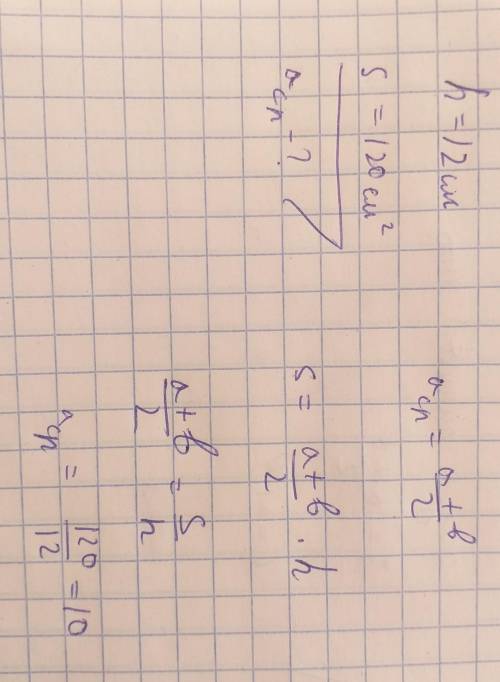 h = 12 см
S = 120 см²
a ср - ?
a ср = (a + b)/2
S = (a + b)/2 · h
(a + b)/2 = S/h
a ср = 120/12 = 10